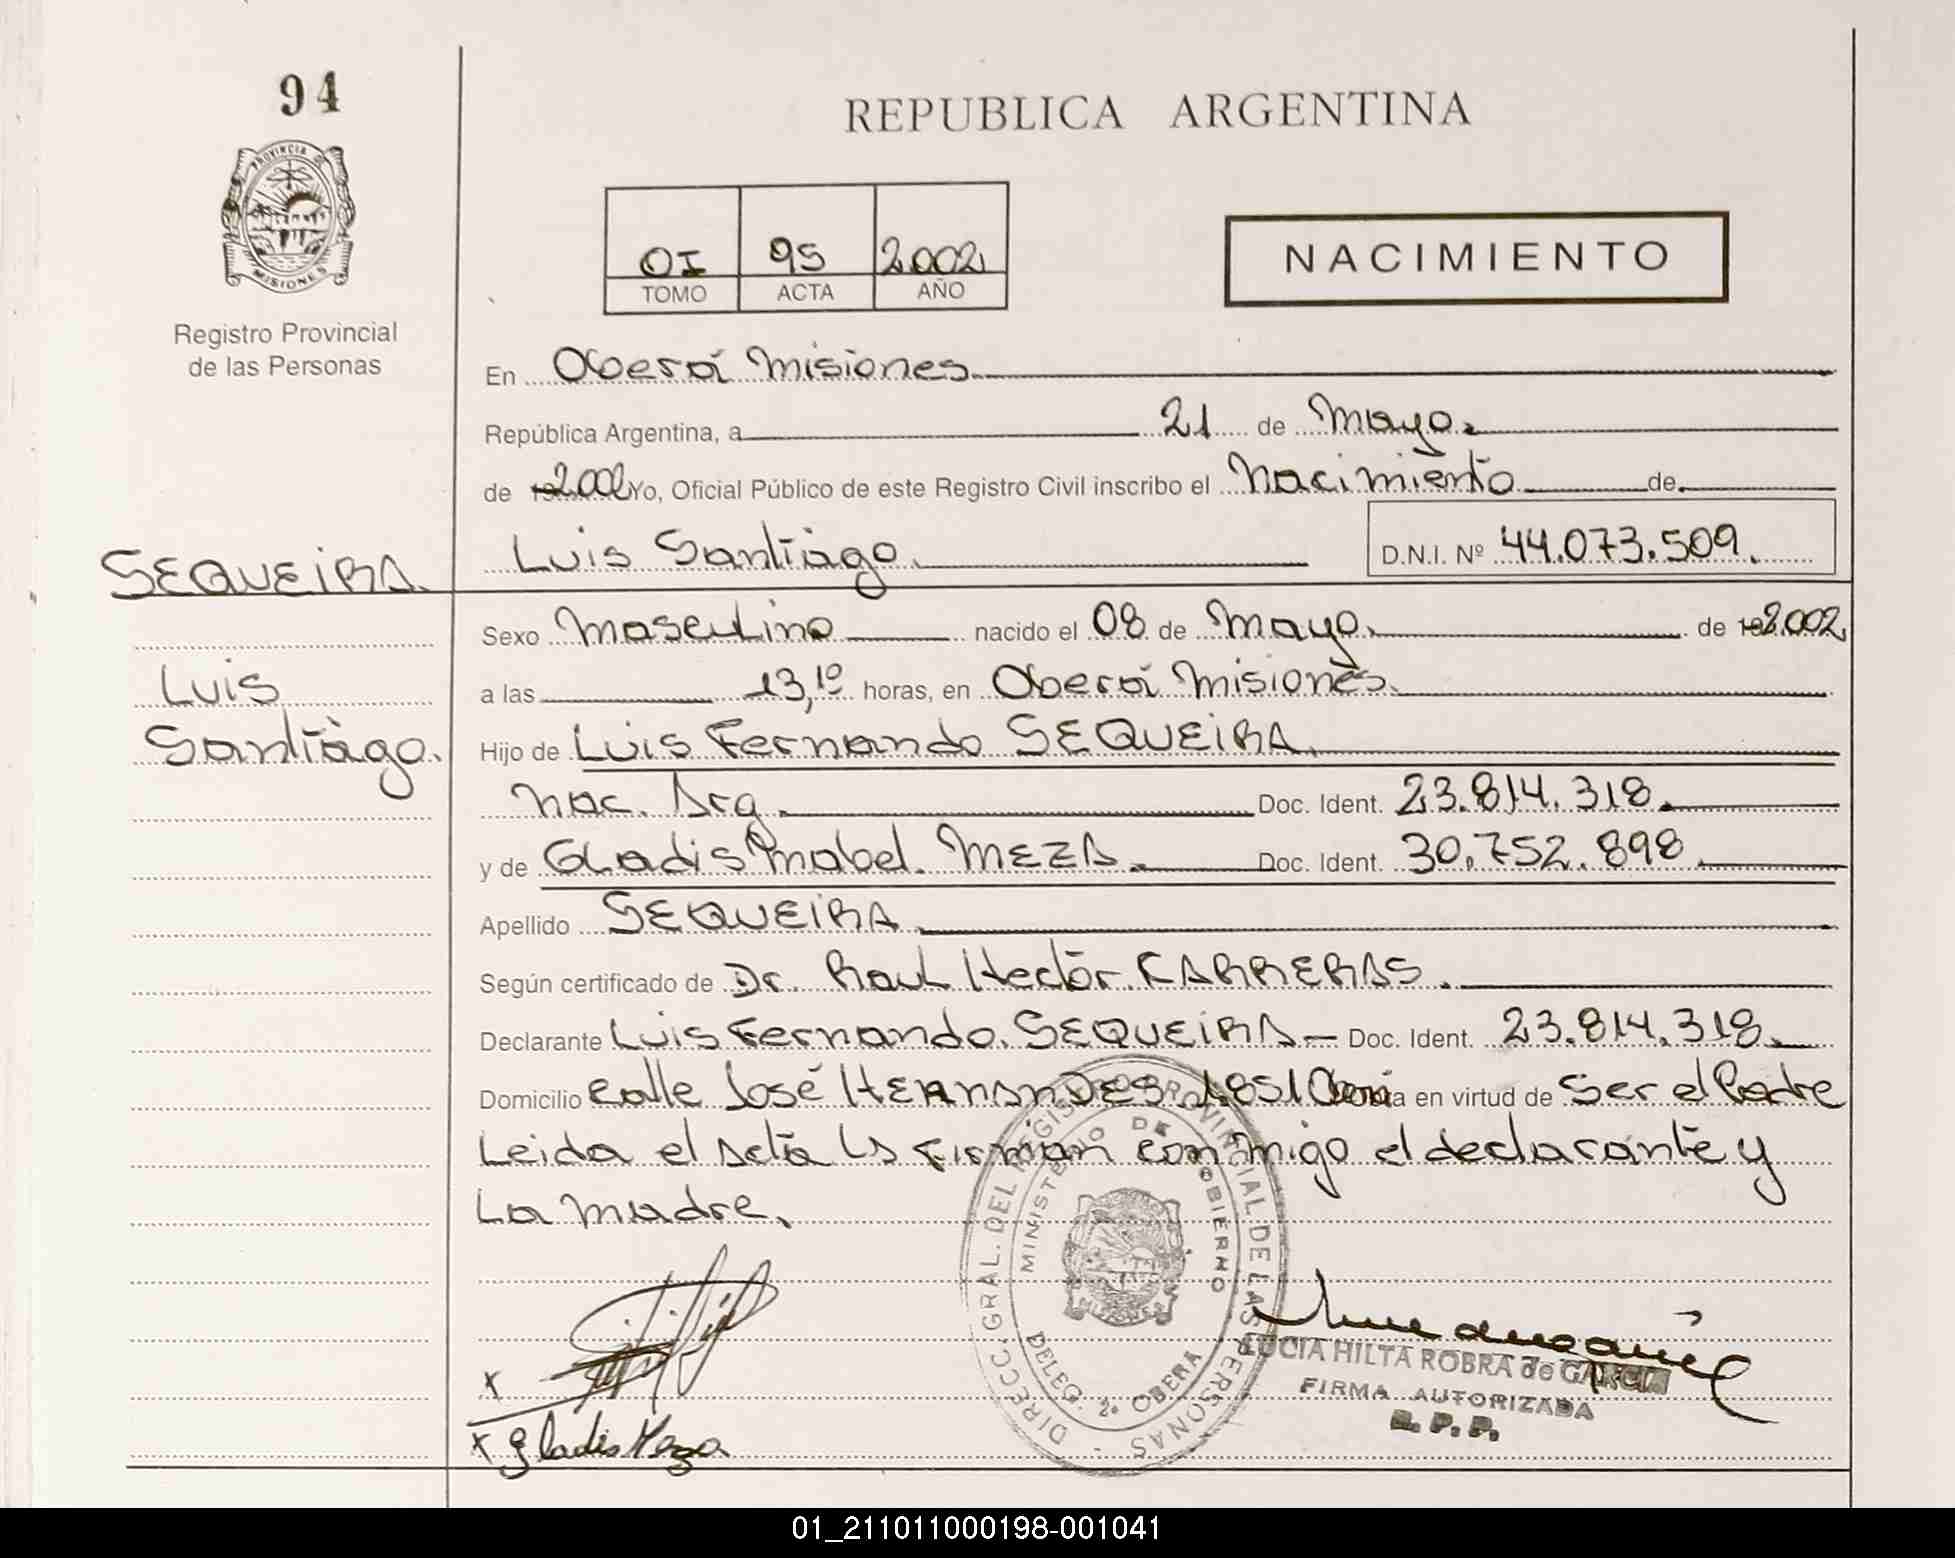 94
REPUBLICA ARGENTINA
PROVINCIA DE
MISIONES
OI 95 2.002
TOMO ACTA AÑO
NACIMIENTO
Registro Provincial
de las Personas
En Oberá Misiones
República Argentina, a 21 de Mayo
de 2.002 Yo, Oficial Público de este Registro Civil inscribo el Nacimiento de
Luis Santiago D.N.I. Nº 44.073.509.
SEQUEIRA
Sexo Masculino nacido el 08 de Mayo de 19 2.002
Luis
a las 13,10 horas, en Oberá Misiones
Santiago.
Hijo de Luis Fernando SEQUEIRA
Nac. Arg. Doc. Ident. 23.814.318.
y de Gladis Mabel MEZA Doc. Ident. 30.752.898
Apellido SEQUEIRA
Según certificado de Dr. Raul Hector CARRERAS
Declarante Luis Fernando SEQUEIRA - Doc. Ident. 23.814.318
Domicilio calle José HERNANDES 1851 Oberá en virtud de Ser el Padre
Leida el acta La Firman conmigo el declarante y
La madre.
DIRECC. GRAL. DEL REGISTRO PROVINCIAL DE LAS PERSONAS
MINISTERIO DE GOBIERNO
MISIONES
DELEG. 2º OBERA
LUCIA HILTA ROBRA de GARCIA
FIRMA AUTORIZADA
R.P.P.
x
x Gladis Meza
01_211011000198-001041